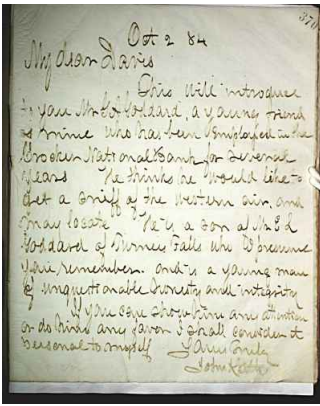 370
Oct 2 84
My dear Davis
This will introduce
to you Mr Goddard, a young friend
of mine who has been employed in the
Crocker National Bank for several
years He thinks he would like to
get a sniff of the western air, and
may locate He is a son of Mr E L
Goddard of Turners Falls who I presume
you remember. and is a young man
of unquestionable honesty and integrity
If you can show him any attention
or do him any favor I shall consider it
personal to myself Yours Truly
John